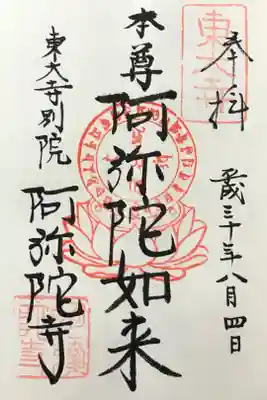 奉拝
平成三十年八月四日
本尊
阿弥陀如来
東大寺別院
阿弥陀寺
東大寺